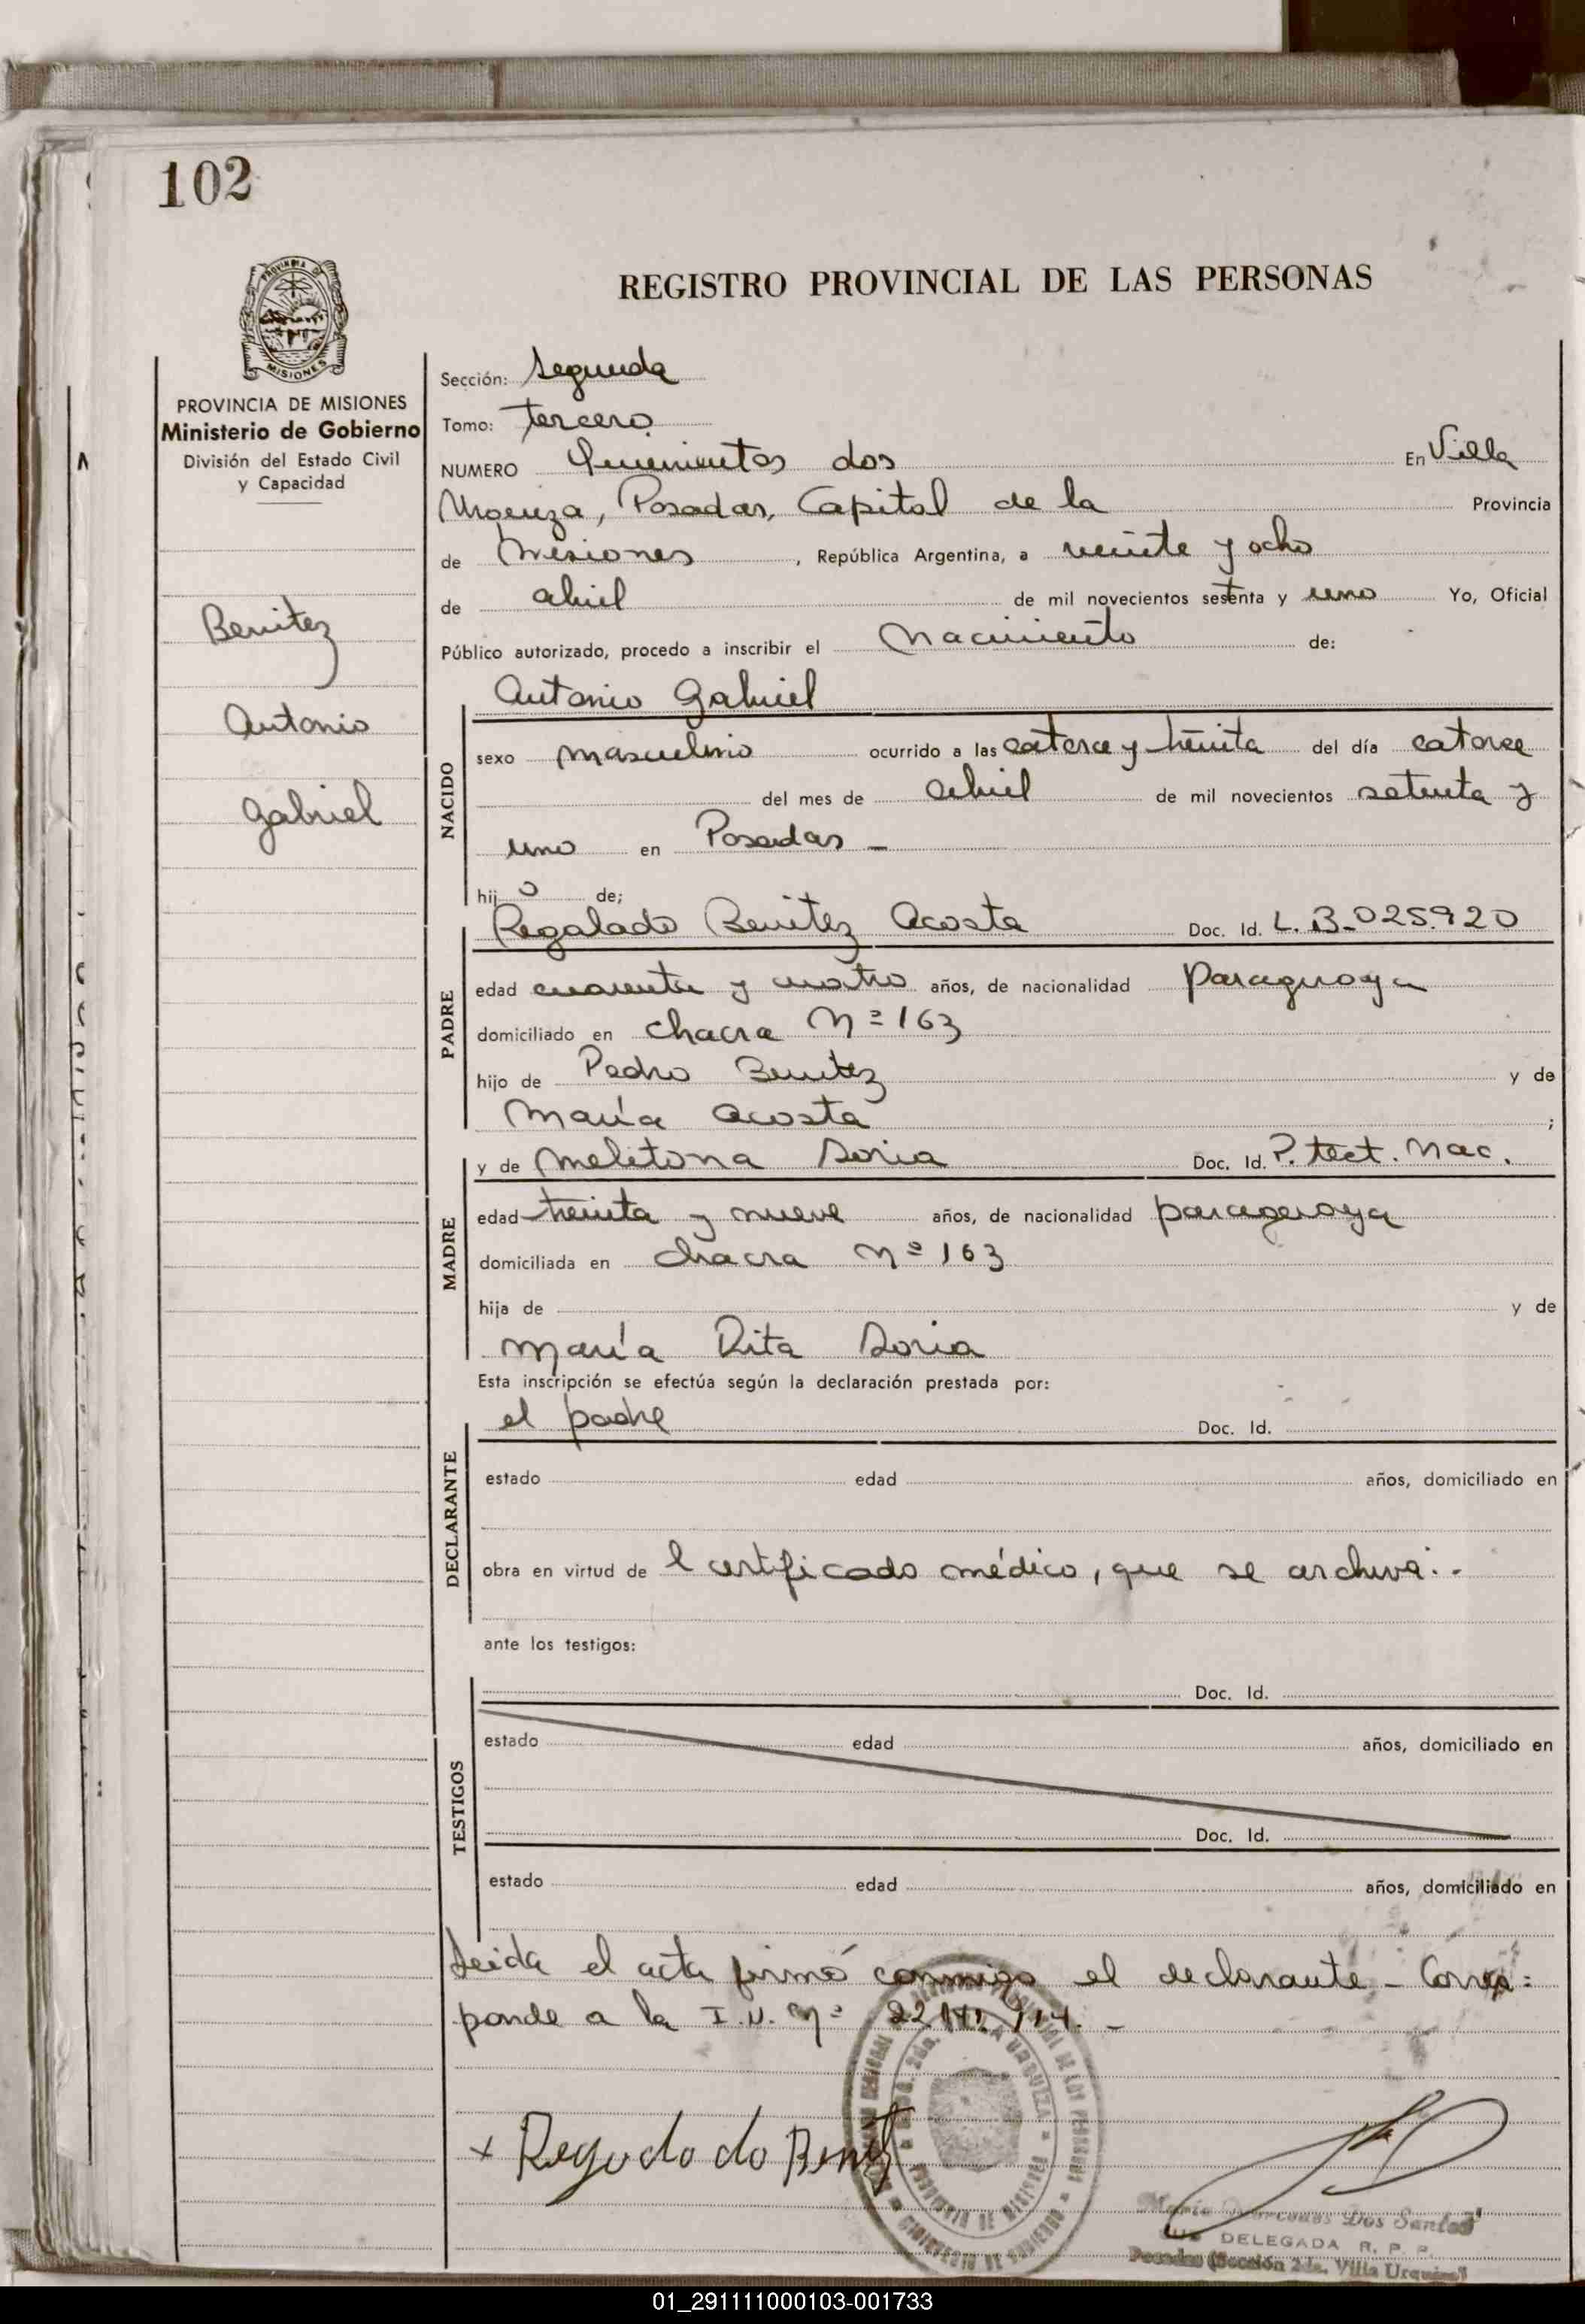 102
REGISTRO PROVINCIAL DE LAS PERSONAS
PROVINCIA DE
MISIONES
PROVINCIA DE MISIONES
Ministerio de Gobierno
División del Estado Civil
y Capacidad
Benitez
Antonio
Gabriel
Sección: Segunda
Tomo: Tercero
NUMERO Quinientos dos En Villa
Urquiza, Posadas, Capital de la Provincia
de Misiones, República Argentina, a veinte y ocho
de abril de mil novecientos setenta y uno Yo, Oficial
Público autorizado, procedo a inscribir el Nacimiento de:
Antonio Gabriel
NACIDO
sexo masculino ocurrido a las catorce y treinta del día catorce
del mes de abril de mil novecientos setenta y
uno en Posadas -
hijo de;
Regalado Benitez Acosta Doc. Id. L.B. 025.920
PADRE
edad cuarenta y cuatro años, de nacionalidad paraguaya
domiciliado en chacra Nº 163
hijo de Pedro Benitez y de
María Acosta ;
y de Melitona Soria Doc. Id. P. tect. Nac.
MADRE
edad treinta y nueve años, de nacionalidad paraguaya
domiciliada en chacra Nº 163
hija de y de
María Rita Soria
Esta inscripción se efectúa según la declaración prestada por:
el padre Doc. Id.
DECLARANTE
estado edad años, domiciliado en
obra en virtud de l certificado médico, que se archiva.-
ante los testigos:
Doc. Id.
TESTIGOS
estado edad años, domiciliado en
Doc. Id.
estado edad años, domiciliado en
Leida el acta firmó conmigo el declarante - Corres=
ponde a la I.N. Nº 22. -
x
Dos Santos
DELEGADA R. P. P.
Posadas (Sección 2da. Villa Urquiza)
01_291111000103-001733